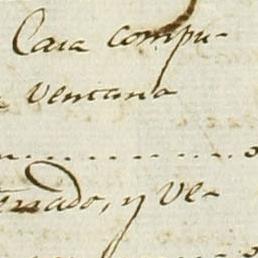 Casa compu-
ventana
errado, y ve-